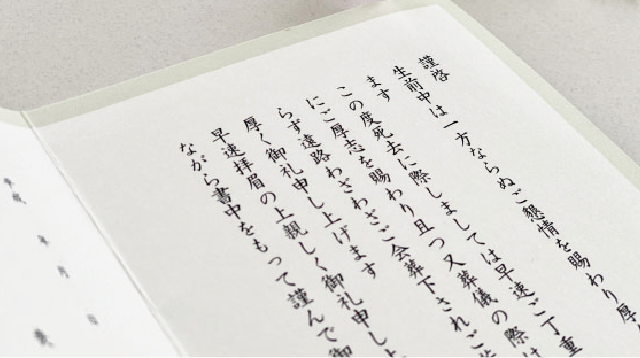 謹啓
生前中は一方ならぬご懇情を賜わり厚
ます
この度死去に際しましては早速ご丁重
にご厚志を賜わり且つ又葬儀の際は
らず遠路わざわざご会葬下されご
厚く御礼申し上げます
早速拝眉の上親しく御礼申し
ながら書中をもって謹んで御
年 月 日